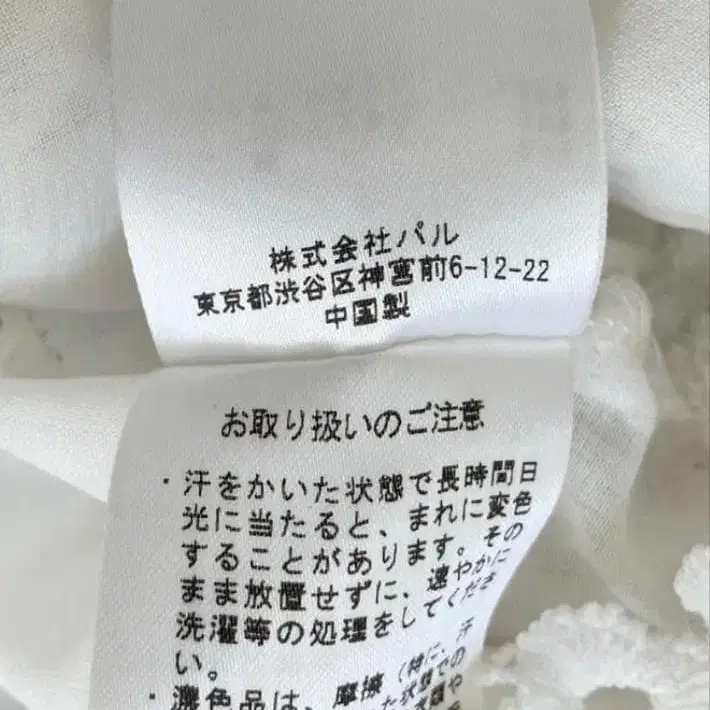 株式会社パル
東京都渋谷区神宮前6-12-22
中国製
お取り扱いのご注意
・汗をかいた状態で長時間日
光に当たると、まれに変色
することがあります。その
まま放置せずに、速やかに
洗濯等の処理をしてくださ
い。
・濃色品は、摩擦(特に、汗
た状態での